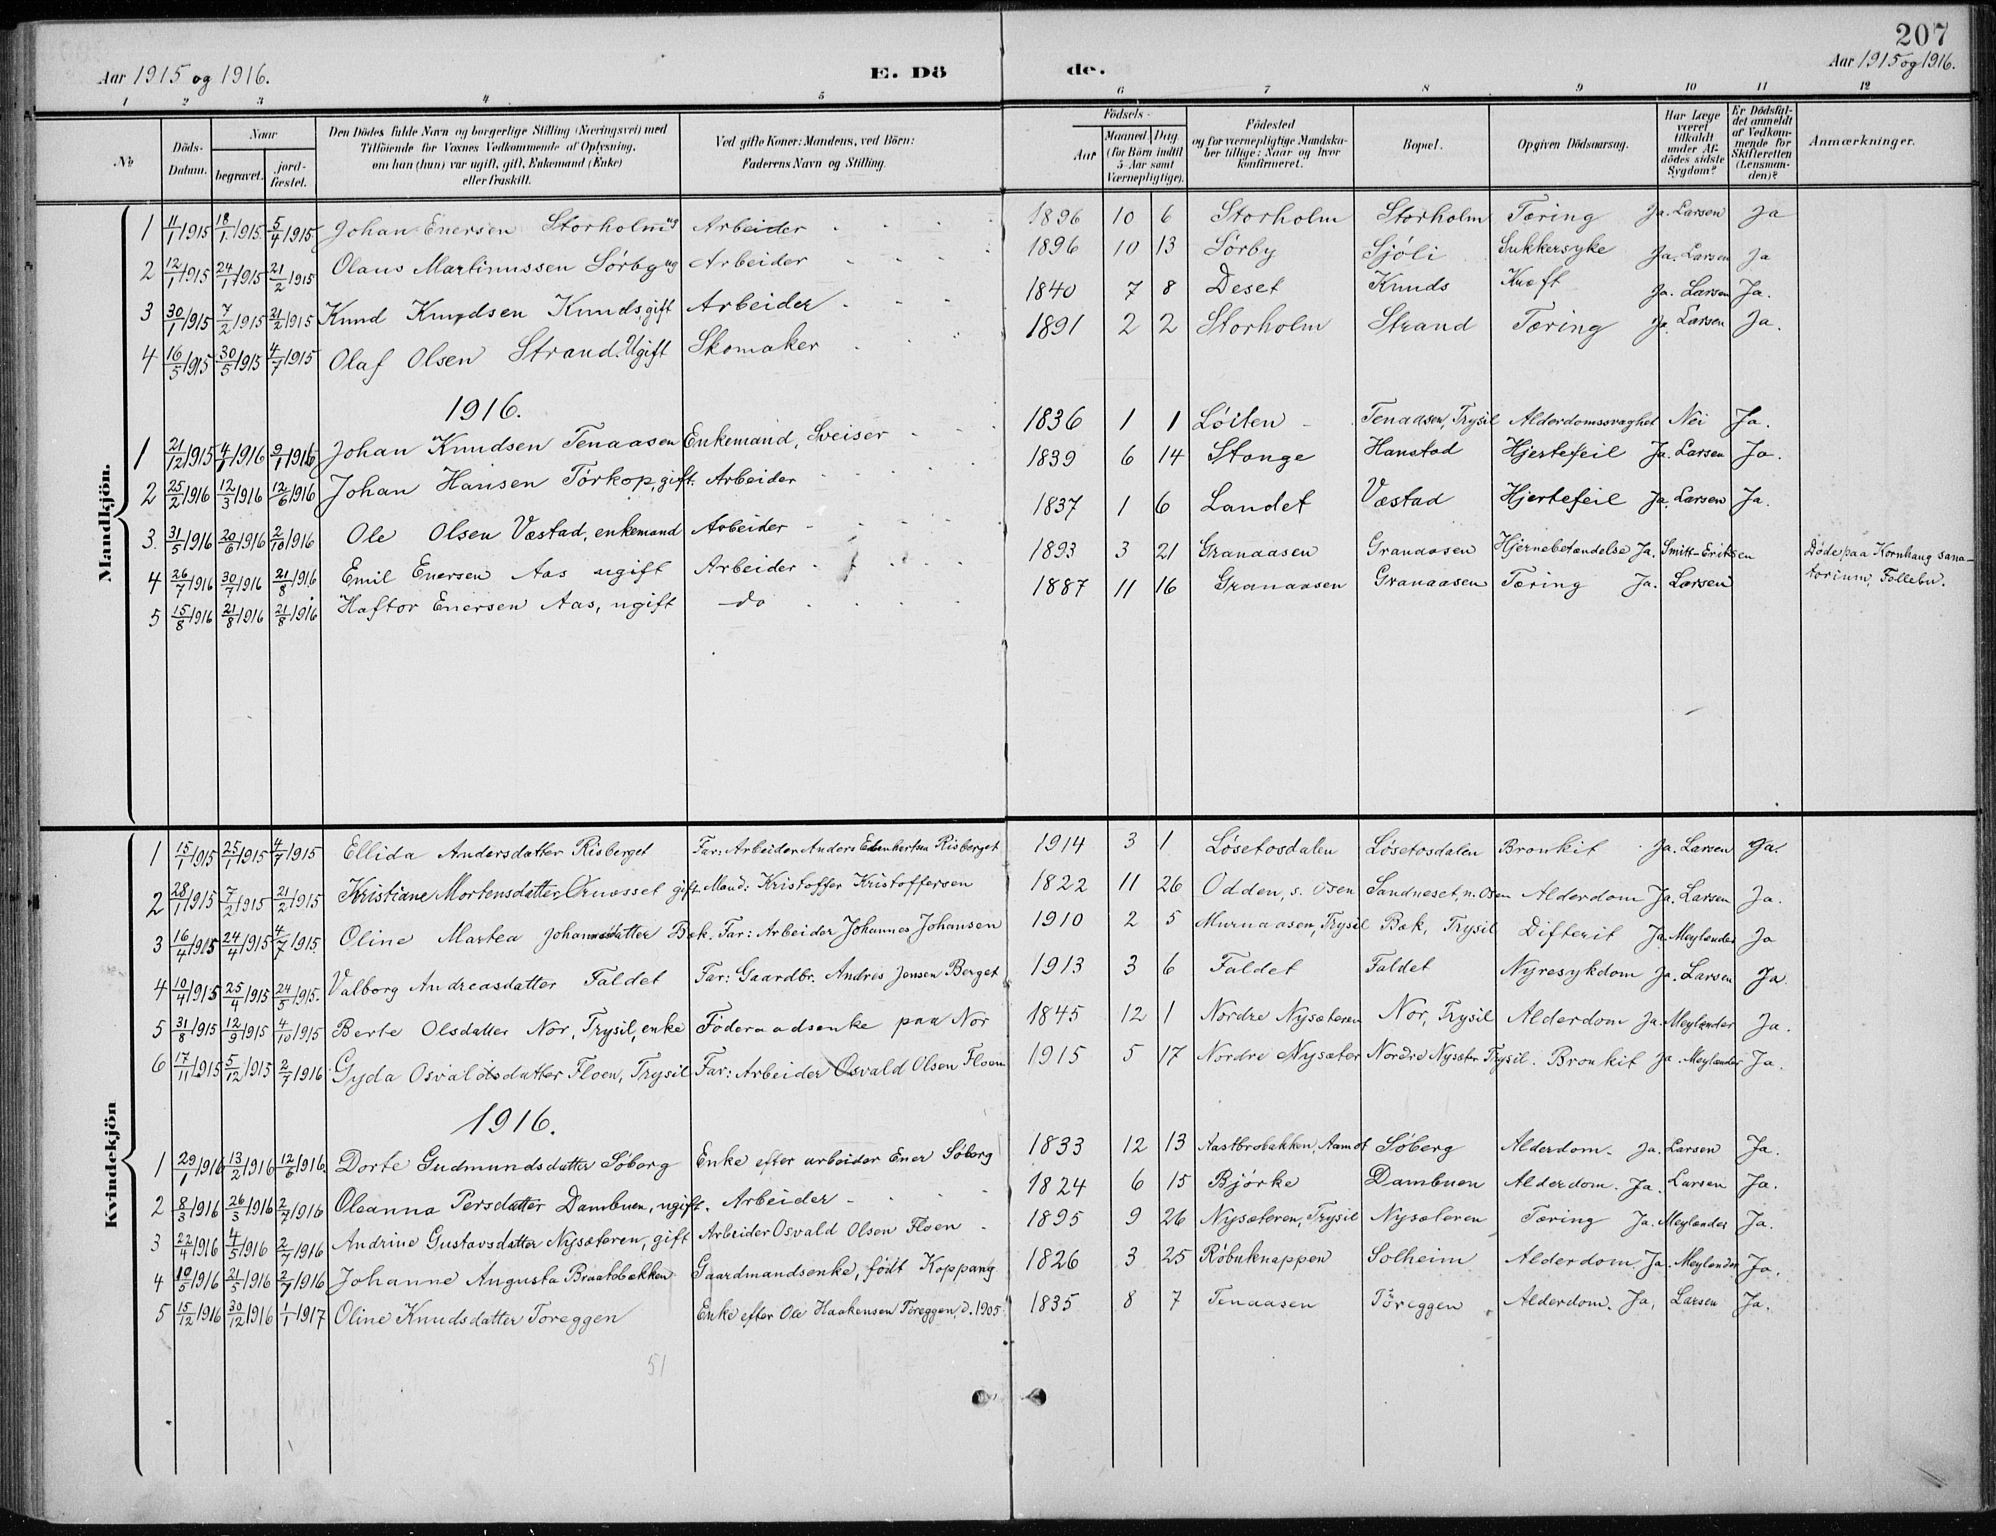 207
Aar 1915 og 1916.
E. Dö
de.
Aar 1915 og 1916.
1 2 3 4 5 6 7 8 9 10 11 12
No
Döds-
Datum.
Naar
begravet.
jord-
fæstet.
Den Dödes fulde Navn og borgerlige Stilling (Næringsvei) med
Tilföiende for Voxnes Vedkommende af Oplysning,
om han (hun) var ugift, gift, Enkemand (Enke)
eller fraskilt.
Ved gifte Koner: Mandens, ved Börn:
Faderens Navn og Stilling.
Födsels-
Aar
Maaned
Dag.
(for Börn indtil
5 Aar samt
Værnepligtige).
Födested
og for værnepligtige Mandska-
ber tillige: Naar og hvor
konfirmeret.
Bopæl.
Opgiven Dödsaarsag.
Har Læge
været
tilkaldt
under Af-
dödes sidste
Sygdom?
Er Dödsfal-
det anmeldt
af Vedkom-
mende for
Skifteretten
(Lensman-
den)?
Anmærkninger.
Mandkjön.
1 11/1 1915 18/1 1915 5/4 1915 Johan Enersen Storholm ug Arbeider 1896 10 6 Storholm Storholm Tæring Ja. Larsen Ja
2 12/1 1915 24/1 1915 21/2 1915 Olaus Martinussen Sörby ug Arbeider 1896 10 13 Sörby Sjöli Sukkersyke Ja. Larsen Ja
3 30/1 1915 7/2 1915 21/2 1915 Knud Knudsen Knuds gift Arbeider 1840 7 8 Deset Knuds Kræft Ja. Larsen Ja.
4 16/5 1915 30/5 1915 4/7 1915 Olaf Olsen Strand. Ugift Skomaker 1891 2 2 Storholm Strand Tæring Ja. Larsen Ja.
1916.
1 21/12 1915 4/1 1916 9/1 1916 Johan Knudsen Tenaasen Enkemand, Sveiser 1836 1 1 Löiten Tenaasen, Trysil Alderdomssvaghet Nei Ja.
2 25/2 1916 12/3 1916 12/6 1916 Johan Hansen Törkop, gift. Arbeider 1839 6 14 Stange Hanstad Hjertefeil Ja. Larsen Ja.
3. 31/5 1916 20/6 1916 2/10 1916 Ole Olsen Væstad, enkemand Arbeider 1837 1 6 Landet Væstad Hjertefeil Ja. Larsen Ja.
4 26/7 1916 30/7 1916 21/8 1916 Emil Enersen Aas ugift Arbeider 1893 3 21 Granaasen Granaasen Hjernebetændelse Ja. Smitt-Eriksen Döde paa Kornhaug sana-
torium, Follebu.
5 15/8 1916 21/8 1916 21/8 1916 Haftor Enersen Aas, ugift do 1887 11 16 Granaasen Granaasen Tæring Ja. Larsen
Kvindekjön
1 15/1 1915 25/1 1915 4/7 1915 Ellida Andersdatter Risberget Far: Arbeider Anders Risberget 1914 3 1 Lösetosdalen Lösetosdalen Bronkit Ja. Larsen Ja.
2 28/1 1915 7/2 1915 21/2 1915 Kristiane Mortensdatter Ornæsset gift. Mand: Kristoffer Kristoffersen 1822 11 26 Odden, s. Osen Sandneset, n. Osen Alderdom Ja. Larsen Ja.
3 16/4 1915 24/4 1915 4/7 1915. Oline Martea Johannesdatter Bæk. Far: Arbeider Johannes Johansen 1910 2 5 Murnaasen, Trysil Bæk, Trysil Difterit Ja. Meylænder Ja
4 10/4 1915 25/4 1915 24/5 1915. Valborg Andreasdatter Faldet Far: Gaardbr. Andres Jensen Berget 1913 3 6 Faldet Faldet Nyresykdom Ja. Larsen Ja
5 31/8 1915 12/9 1915 4/10 1915 Berte Olsdatter Nor, Trysil, enke Föderaadsenke paa Nor 1845 12 1 Nordre Nysæteren Nor, Trysil Alderdom Ja. Meylænder Ja.
6 17/11 1915 5/12 1915 2/7 1916 Gyda Osvaldsdatter Floen, Trysil Far: Arbeider Osvald Olsen Floen 1915 5 17 Nordre Nysæter Nordre Nysæter Trysil. Bronkit Ja. Meylænder Ja.
1916.
1 29/1 1916 13/2 1916 12/6 1916. Dorte Gudmundsdatter Söberg Enke efter arbeider Ener Söberg 1833 12 13 Aastbrobakken, Aamot Söberg Alderdom. Ja. Larsen Ja.
2 8/3 1916 26/3 1916 2/7 1916 Oleanna Persdatter Dambuen, ugift. Arbeider 1824 6 15 Björke Dambuen Alderdom. Ja. Larsen Ja.
3 22/4 1916 4/5 1916 2/7 1916 Andrine Gustavsdatter Nysæteren, gift Arbeider Osvald Olsen Floen 1895 9 26 Nysæteren, Trysil Nysæteren Tæring Ja. Meylænder Ja.
4 10/5 1916 21/5 1916 2/7 1916 Johanne Augusta Braatabakken Gaardmandsenke, født Koppang 1826 3 25 Röbuknappen Solheim Alderdom. Ja. Meylænder Ja.
5 15/12 1916 30/12 1916 1/1 1917 Oline Knudsdatter Toreggen Enke efter Ole Haakensen Toreggen, d. 1905. 1835 8 7 Tenaasen Töreggen Alderdom. Ja. Larsen Ja.
51